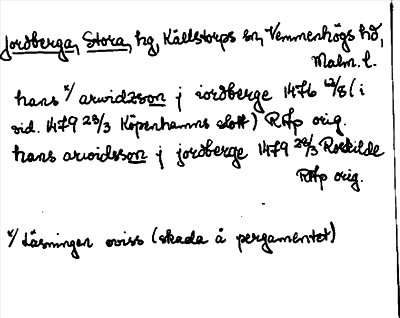 Jordberga, Stora, hg, Källstorps sn, Vemmenhögs hd,
Malm. l.
hans x/ arwidzson j iordberge 1476 12/8 (i
vid. 1479 28/3 Köpenhamns slott) RAp orig.
hans arwidsson j jordberge 1479 28/3 Roskilde
RAp orig.
x/ Läsningen oviss (skada å pergamentet)